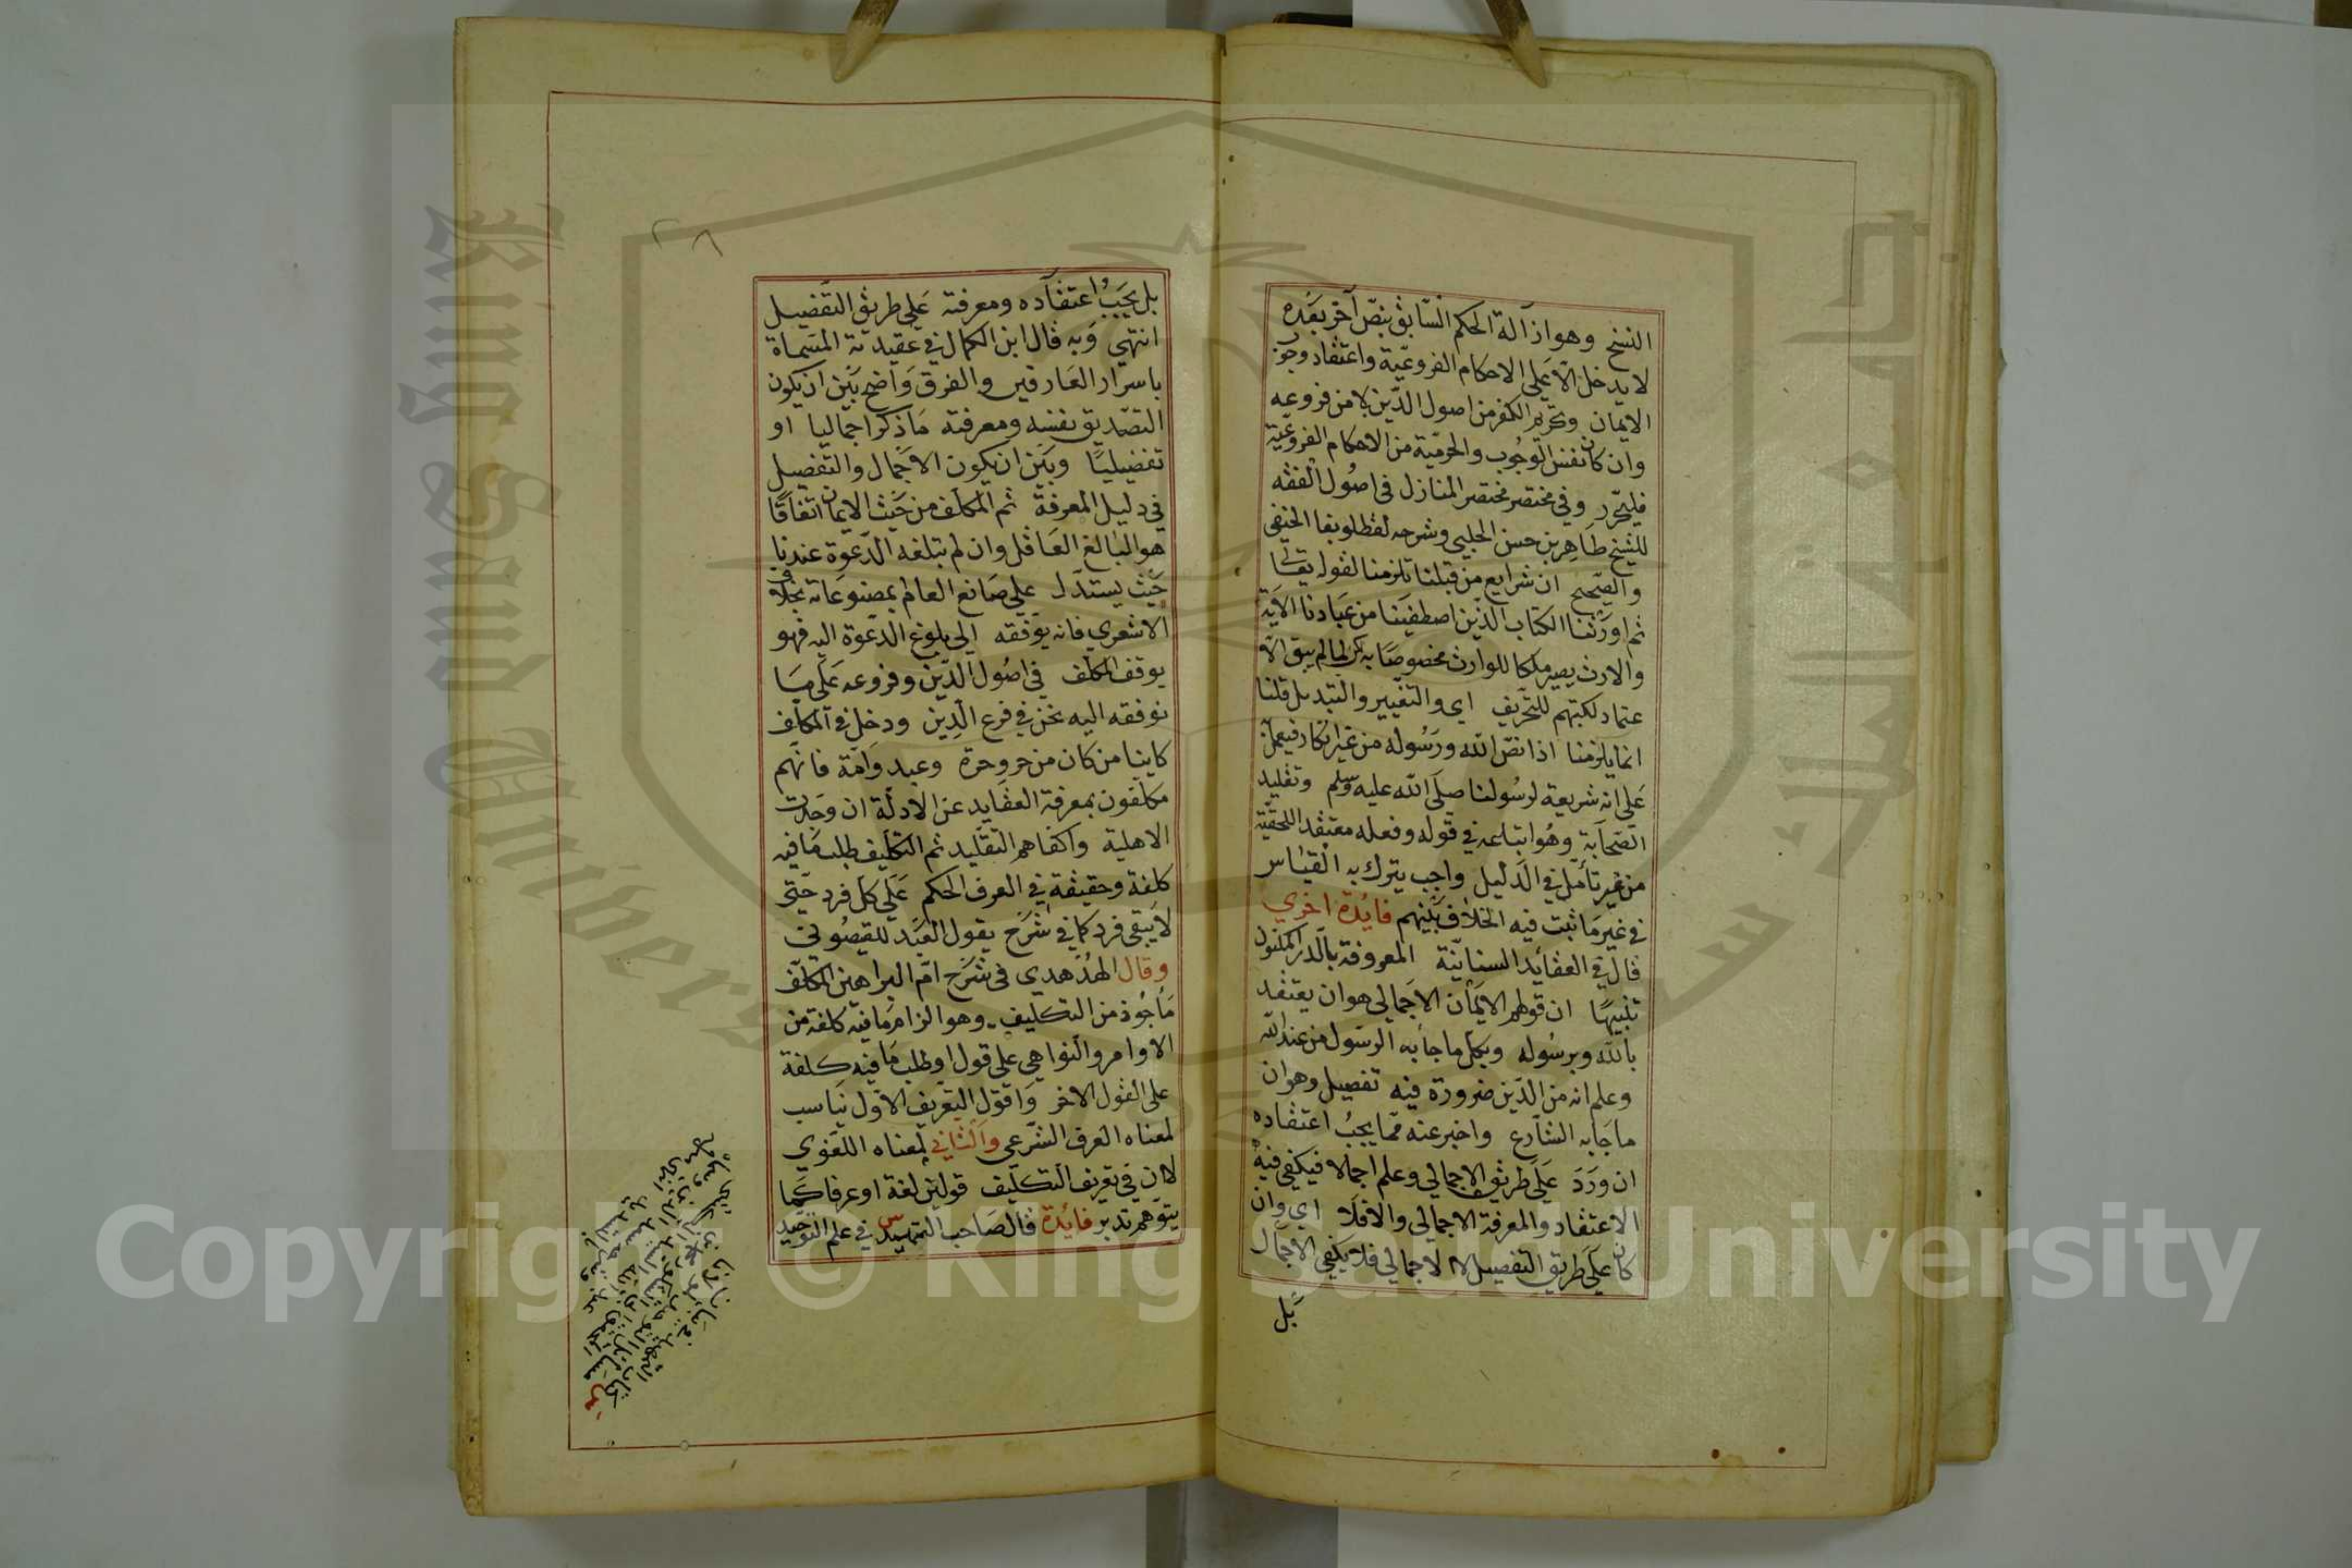 النسخ وهو ازالة الحكم السابق بنص آخر بعده
لا يدخل الا على الاحكام الفروعية واعتقاد وجوب
الايمان وتحريم الكفر من اصول الدين لا من فروعه
وان كان نفس الوجوب والحرمية من الاحكام الفروعية
فليحرر وفي مختصر مختصر المنازل في اصول الفقه
للشيخ طاهر بن حسن الحلبي وشرحه لقطلوبغا الحنفي
والصحيح ان شرايع من قبلنا تلزمنا لقوله تعالى
ثم اورثنا الكتاب الذين اصطفينا من عبادنا الاية
والارث يصير ملكا للوارث مخصوصا به لكن لما لم يبق الا
عتماد لكتبهم للتحريف اي والتغيير والتبديل قلنا
انما يلزمنا اذا نص الله ورسوله من غير انكار فيعمل
على انه شريعة لرسولنا صلى الله عليه وسلم وتقليد
الصحابة وهو اتباعه في قوله وفعله معتقدا للحقية
من غير تأمل في الدليل واجب يترك به القياس
في غير ما ثبت فيه الخلاف بينهم فايدة اخري
قال في العقائد السنانية المعروفة بالدر المكنون
تنبيها ان قولهم الايمان الاجمالي هو ان يعتقد
بالله وبرسوله وبكل ما جا به الرسول من عند الله
وعلم انه من الدين ضرورة فيه تفصيل وهو ان
ما جا به الشارع واخبر عنه مما يجب اعتقاده
ان ورد على طريق الاجمالي وعلم اجمالا فيكفي فيه
الاعتقاد والمعرفة الاجمالي والا فلا اي وان
كان على طريق التفصيل لا الاجمالي فلا يكفي الاجمال
بل
بل يجب اعتقاده ومعرفته علي طريق التفضيل
انتهي وبه قال ابن الكمال في عقيدته المسماة
باسرار العارفين والفرق واضح بين ان يكون
التصديق نفسه ومعرفته ما ذكر اجماليا او
تفضيليا وبين ان يكون الاجمال والتفصيل
في دليل المعرفة ثم المكلف من حيث الايمان اتفاقا
هو البالغ العاقل وان لم تبلغه الدعوة عندنا
حيث يستدل علي صانع العالم بمصنوعاته بخلاف
الاشعري فانه يوقفه الي بلوغ الدعوة اليه فهو
يوقف المكلف في اصول الدين وفروعه على ما
نوفقه اليه نحن في فرع الدين ودخل في المكلف
كاينا من كان من حر وحرة وعبد وامة فانهم
مكلفون بمعرفة العقايد عن الادلة ان وجدت
الاهلية واكفاهم التقليد ثم التكليف طلب ما فيه
كلفة وحقيقة في العرف الحكم على كل فرد حتي
لا يبقى فرد كما في شرح يقول العبد للقيصوني
وقال الهدهدي في شرح ام البراهين المكلف
مأخوذ من التكليف وهو الزام ما فيه كلفة من
الاوامر والنواهي على قول او طلب ما فيه كلفة
على القول الاخر واقول التعريف الاول يناسب
لمعناه العرف الشرعي والثاني لمعناه اللغوي
لان في تعريف التكليف قولين لغة او عرفا كما
يتوهم تدبر فايدة قال صاحب التمهيد س في علم التوحيد